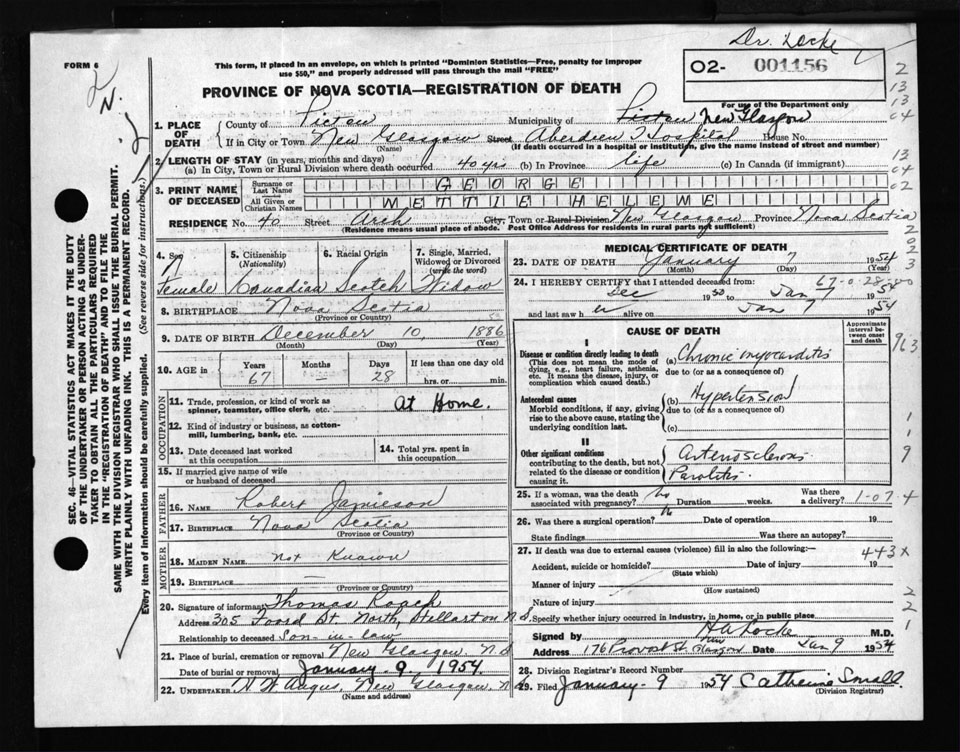 Dr. Locke
FORM 6
This form, if placed in an envelope, on which is printed "Dominion Statistics—Free, penalty for improper
use $50," and properly addressed will pass through the mail "FREE"
02- 001156
For use of the Department only
PROVINCE OF NOVA SCOTIA—REGISTRATION OF DEATH
1. PLACE OF DEATH
County of Pictou Municipality of Pictou New Glasgow
If in City, Town or New Glasgow Street Aberdeen Hospital House No.
(Name) (If death occurred in a hospital or institution, give the name instead of street and number)
2. LENGTH OF STAY (in years, months and days)
(a) In City, Town or Rural Division where death occurred 40 yrs (b) In Province life (c) In Canada (if immigrant)
3. PRINT NAME OF DECEASED
Surname or Last Name GEORGE
All Given or Christian Names METTIE HELEME
RESIDENCE No. 40 Street Arch City, Town or Rural Division New Glasgow Province Nova Scotia
(Residence means usual place of abode. Post Office Address for residents in rural parts not sufficient)
4. Sex Female
5. Citizenship (Nationality) Canadian
6. Racial Origin Scotch
7. Single, Married, Widowed or Divorced (write the word) Widow
8. BIRTHPLACE Nova Scotia
(Province or Country)
9. DATE OF BIRTH December 10, 1886
(Month) (Day) (Year)
10. AGE in Years 67 Months — Days 28 If less than one day
hrs. or min.
OCCUPATION
11. Trade, profession, or kind of work as
spinner, teamster, office clerk, etc. At Home.
12. Kind of industry or business, as cotton-
mill, lumbering, bank, etc.
13. Date deceased last worked
at this occupation
14. Total yrs. spent in
this occupation
15. If married give name of wife
or husband of deceased
FATHER
16. Name Robert Jamieson
17. Birthplace Nova Scotia
(Province or Country)
MOTHER
18. Maiden Name Not Known
19. Birthplace —
(Province or Country)
20. Signature of informant Thomas Roach
Address 305 Foord St. North, Stellarton N.S.
Relationship to deceased Son-in-law
21. Place of burial, cremation or removal New Glasgow, N.S
Date of burial or removal January 9. 1954
22. Undertaker H W Angus, New Glasgow, N.S
MEDICAL CERTIFICATE OF DEATH
23. DATE OF DEATH January 7 1954
(Month) (Day) (Year)
24. I HEREBY CERTIFY that I attended deceased from:
Dec 1950 to Jan 7 1954
67-0-28
and last saw her alive on Jan 7 1954
CAUSE OF DEATH
Approximate interval between onset and death
I
Disease or condition directly leading to death
(This does not mean the mode of
dying, e.g., heart failure, asthenia,
etc. It means the disease, injury, or
complication which caused death.)
(a) Chronic myocarditis
due to (or as a consequence of)
Antecedent causes
Morbid conditions, if any, giving
rise to the above cause, stating the
underlying condition last.
(b) Hypertension
due to (or as a consequence of)
(c)
II
Other significant conditions
contributing to the death, but not
related to the disease or condition
causing it.
Arteriosclerosis
Parotitis
25. If a woman, was the death
associated with pregnancy? No Duration weeks. Was there
a delivery?
1-07.4
26. Was there a surgical operation? No Date of operation 19
State findings Was there an autopsy?
27. If death was due to external causes (violence) fill in also the following:—
443x
Accident, suicide or homicide? Date of injury 19
(State which)
Manner of injury
(How sustained)
Nature of injury
Specify whether injury occurred in industry, in home, or in public place
Signed by H A Locke M.D.
Address 176 Provost St. New Glasgow Date Jan 9 1954
28. Division Registrar's Record Number
29. Filed January 9 1954 Catherine Small.
(Division Registrar)
SEC. 46—VITAL STATISTICS ACT MAKES IT THE DUTY
OF THE UNDERTAKER OR PERSON ACTING AS UNDER-
TAKER TO OBTAIN ALL THE PARTICULARS REQUIRED
IN THE "REGISTRATION OF DEATH" AND TO FILE THE
SAME WITH THE DIVISION REGISTRAR WHO SHALL ISSUE THE BURIAL PERMIT.
WRITE PLAINLY WITH UNFADING INK. THIS IS A PERMANENT RECORD.
Every item of information should be carefully supplied. (See reverse side for instructions.)
2
13
13
04
13
04
02
2
02
3
963
1
1
9
2
2
1